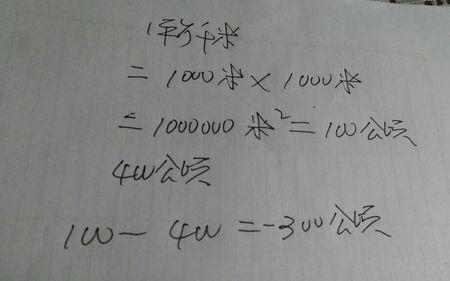 1平方千米
= 1000米 × 1000米
= 1000000 米² = 100公顷
400公顷
100 - 400 = -300公顷